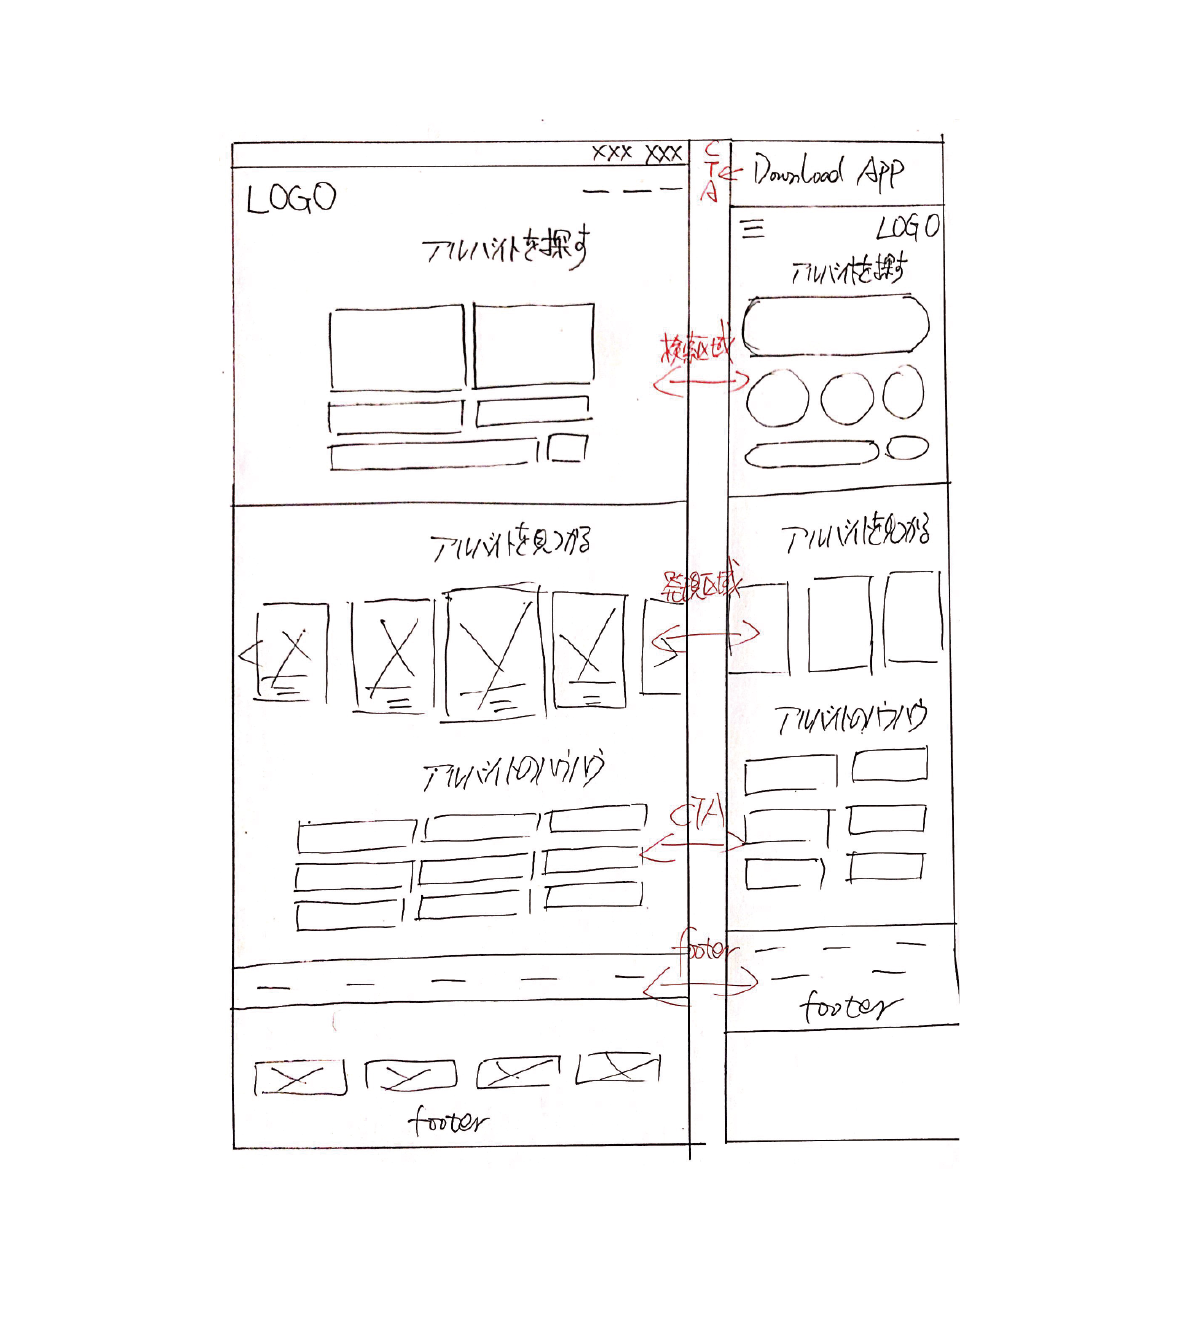 XXX XXX
LOGO
アルバイトを探す
アルバイトを見つかる
アルバイトのハウハウ
footer
C
T
A
検索区域
発現区域
CTA
footer
Download App
LOGO
アルバイトを探す
アルバイトを見つかる
アルバイトのハウハウ
footer